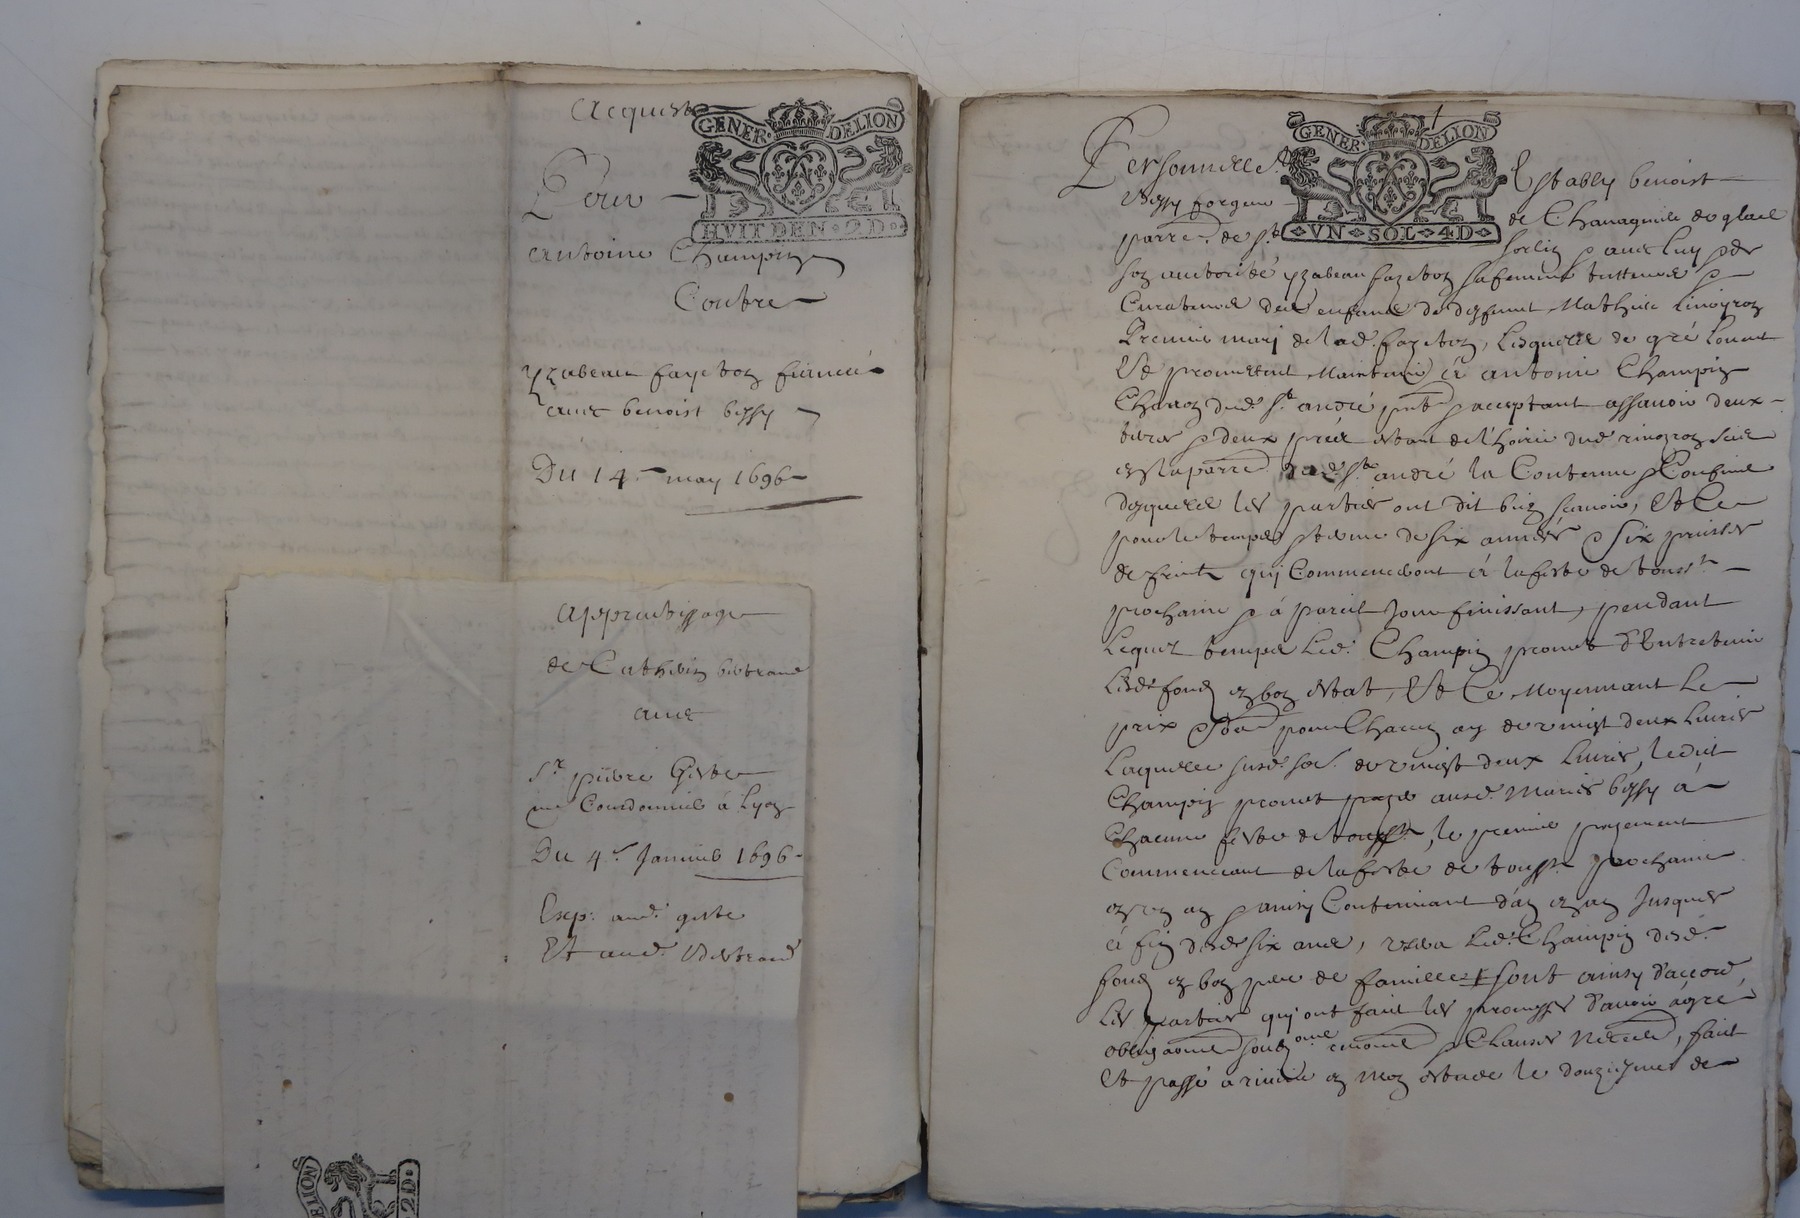 Acquest
GENER. DELION
HVIT DEN. 2D.
Pour
Antoine Champin
Contre
yzabeau fayeton fiancée
avec benoist bessy
Du 14e may 1696
Apprentissage
de Catherin bertrand
avec
Sr pierre Geste
me Courdonnier à Lyon
Du 4e Janvier 1696
Exp: aud. geste
Et aud. Bertrand
ELION
2D.
GENER. DELION
VN SOL 4D
Personnellemt Estably benoist
Bessy forgeur de
parre. de St
son authorité yzabeau fayeton sa femme tuttrice &
Curatrice des enfans de deffunt Mathieu
Premier mary de lad. fayeton, Lesquels de gré Louent
Et promettent Maintenir à antoine Champin
Charron dud. St andré pnt & acceptant assavoir deux
terres & deux prés estant de l'hoirie dud.
en la parre. dud. St andré la Contenue & Confins
desquels les parties ont dit bien scavoir, Et Ce
pour le temps & terme de six années & six prinses
de fruits qui Commenceront à la feste de touss.
prochaine & à pareil Jour finissant, pendant
Lequel temps Led. Champin promet d'Entretenir
Lesd. fonds en bon estat, Et Ce Moyennant Le
prix & pour Chacun an de vingt deux Livres
Laquelle susd. so. de vingt deux Livres, ledit
Champin promet payer ausd. Mariés bessy à
Chacune feste de touss., le premier payement
Commencant de la feste de touss. prochaine
en un an & ainsy Continuant d'an en an Jusques
à fin desd. six ans, usera Led. Champin desd.
fonds en bon pere de famille sont ainsy d'accord
Les parties qui ont fait les promesses d'avoir à gré
& Clauses, fait
Et passé à en mon estude le douziesme de